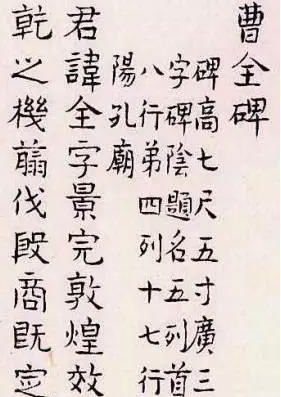 曹全碑
碑高七尺五寸廣三
字碑陰題名五列首
八行弟四列十七行
陽孔廟
君諱全字景完敦煌效
乾之機翦伐殷商既定